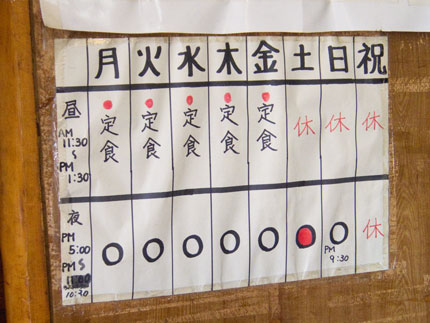 月 火 水 木 金 土 日 祝
昼 AM 11:30 〜 PM 1:30 定食 定食 定食 定食 定食 休 休 休
夜 PM 5:00 〜 PM 10:30 ○ ○ ○ ○ ○ ○ ○ PM 9:30 休